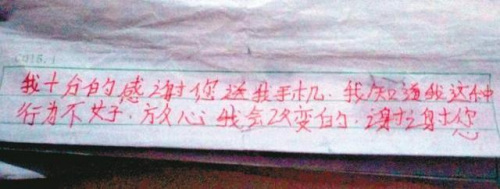 我十分的感谢您送我手机.我知道我这种
行为不好.放心;我会改变的.谢谢您